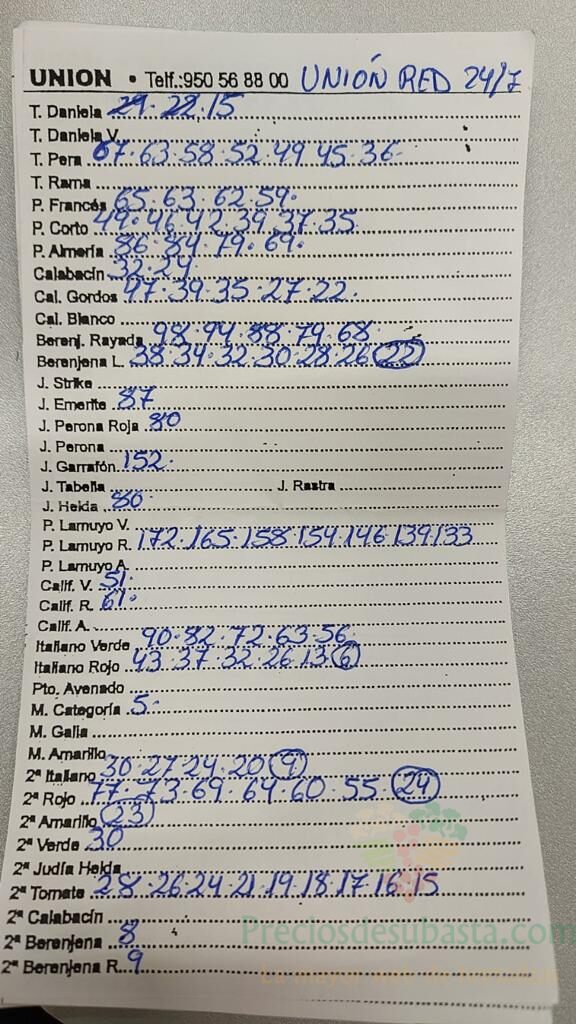 UNION • Telf.:950 56 88 00 UNIÓN RED 24/7
T. Daniela 29. 22. 15
T. Daniela V.
T. Pera 67. 63. 58. 52. 49 45. 36.
T. Rama
P. Francés 65. 63. 62. 59.
P. Corto 49. 46. 42. 39. 37. 35
P. Almería 86. 84. 79. 69.
Calabacín 32. 24.
Cal. Gordos 47. 39. 35. 27. 22.
Cal. Blanco
Berenj. Rayada 98. 94. 88. 79. 68.
Berenjena L. 38. 34. 32. 30. 28. 26 22
J. Strike
J. Emerite 87
J. Perona Roja 80
J. Perona
J. Garrafón 152.
J. Tabella J. Rastra
J. Helda 80.
P. Lamuyo V.
P. Lamuyo R. 172. 165. 158. 154. 146. 139. 133
P. Lamuyo A.
Calif. V. 51.
Calif. R. 61.
Calif. A.
Italiano Verde 90. 82. 72. 63. 56.
Italiano Rojo 43. 37. 32. 26. 13. 6
Pto. Avenado
M. Categoría 5.
M. Galia
M. Amarillo
2ª Italiano 30. 27. 24. 20 9
2ª Rojo 77. 73. 69. 64. 60. 55. 24
2ª Amarillo 23
2ª Verde 30
2ª Judía Helda
2ª Tomate 28. 26. 24. 21. 19. 18. 17 16. 15
2ª Calabacín
Preciosdesubasta.com
2ª Berenjena 8
2ª Berenjena R. 9